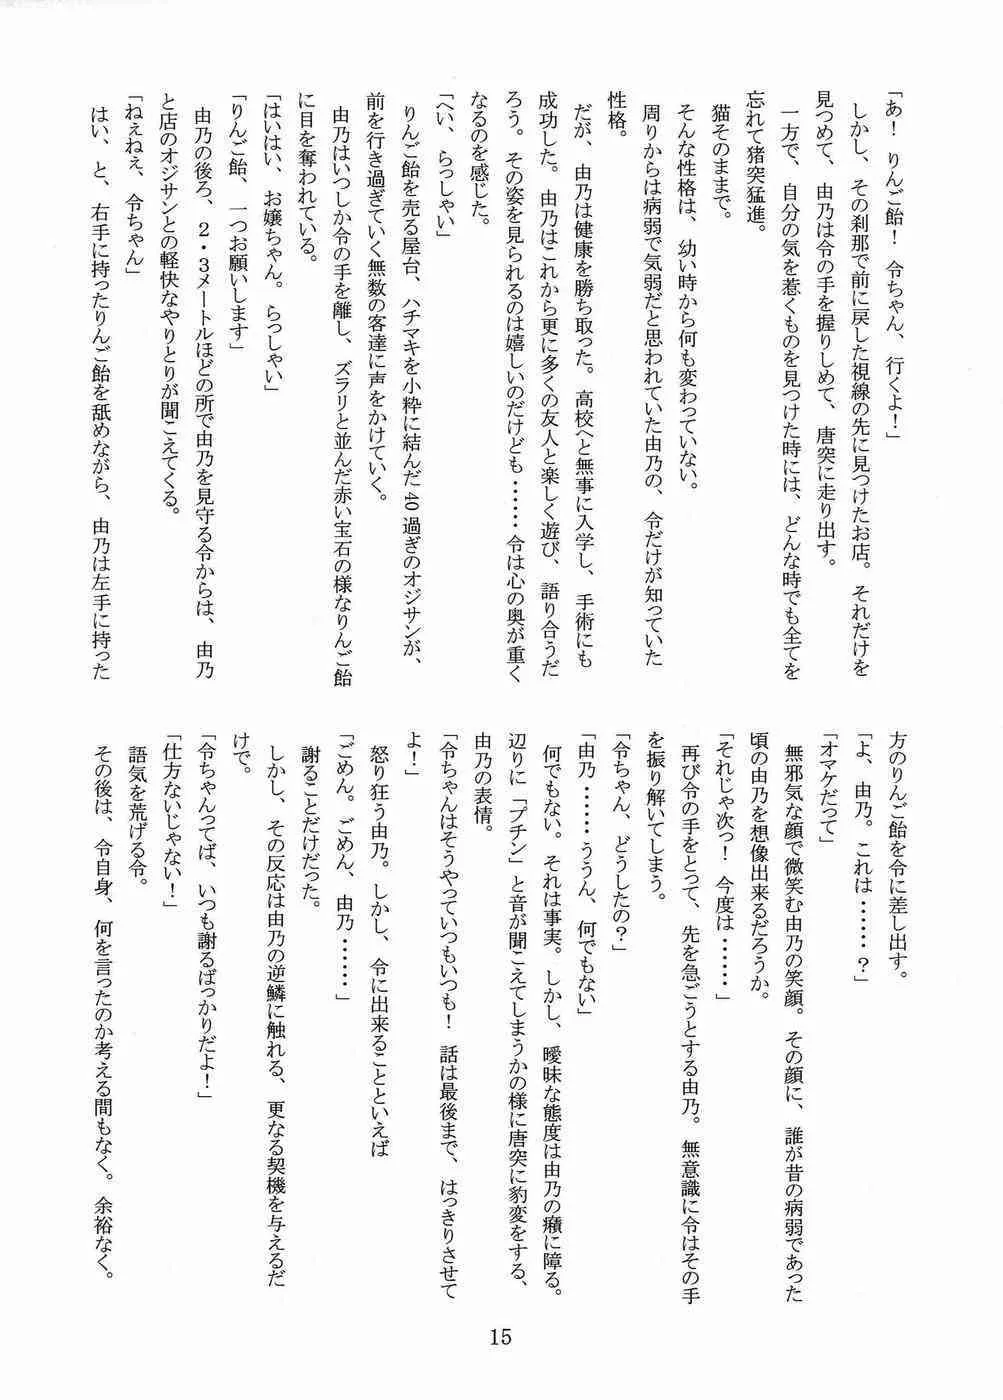 「あ！ りんご飴！ 令ちゃん、行くよ！」
しかし、その刹那で前に戻した視線の先に見つけたお店。それだけを
見つめて、由乃は令の手を握りしめて、唐突に走り出す。
一方で、自分の気を惹くものを見つけた時には、どんな時でも全てを
忘れて猪突猛進。
猫そのままで。
そんな性格は、幼い時から何も変わっていない。
周りからは病弱で気弱だと思われていた由乃の、令だけが知っていた
性格。
だが、由乃は健康を勝ち取った。高校へと無事に入学し、手術にも
成功した。由乃はこれから更に多くの友人と楽しく遊び、語り合うだ
ろう。その姿を見られるのは嬉しいのだけども……令は心の奥が重く
なるのを感じた。
「へい、らっしゃい」
りんご飴を売る屋台、ハチマキを小粋に結んだ 40 過ぎのオジサンが、
前を行き過ぎていく無数の客達に声をかけていく。
由乃はいつしか令の手を離し、ズラリと並んだ赤い宝石の様なりんご飴
に目を奪われている。
「はいはい、お嬢ちゃん。らっしゃい」
「りんご飴、一つお願いします」
由乃の後ろ、２・３メートルほどの所で由乃を見守る令からは、由乃
と店のオジサンとの軽快なやりとりが聞こえてくる。
「ねぇねぇ、令ちゃん」
はい、と、右手に持ったりんご飴を舐めながら、由乃は左手に持った
方のりんご飴を令に差し出す。
「よ、由乃。これは……？」
「オマケだって」
無邪気な顔で微笑む由乃の笑顔。その顔に、誰が昔の病弱であった
頃の由乃を想像出来るだろうか。
「それじゃ次っ！ 今度は……」
再び令の手をとって、先を急ごうとする由乃。無意識に令はその手
を振り解いてしまう。
「令ちゃん、どうしたの？」
「由乃……ううん、何でもない」
何でもない。それは事実。しかし、曖昧な態度は由乃の癪に障る。
辺りに「プチン」と音が聞こえてしまうかの様に唐突に豹変をする、
由乃の表情。
「令ちゃんはそうやっていつもいつも！ 話は最後まで、はっきりさせて
よ！」
怒り狂う由乃。しかし、令に出来ることといえば
「ごめん。ごめん、由乃……」
謝ることだけだった。
しかし、その反応は由乃の逆鱗に触れる、更なる契機を与えるだ
けで。
「令ちゃんってば、いつも謝るばっかりだよ！」
「仕方ないじゃない！」
語気を荒げる令。
その後は、令自身、何を言ったのか考える間もなく。余裕なく。
15